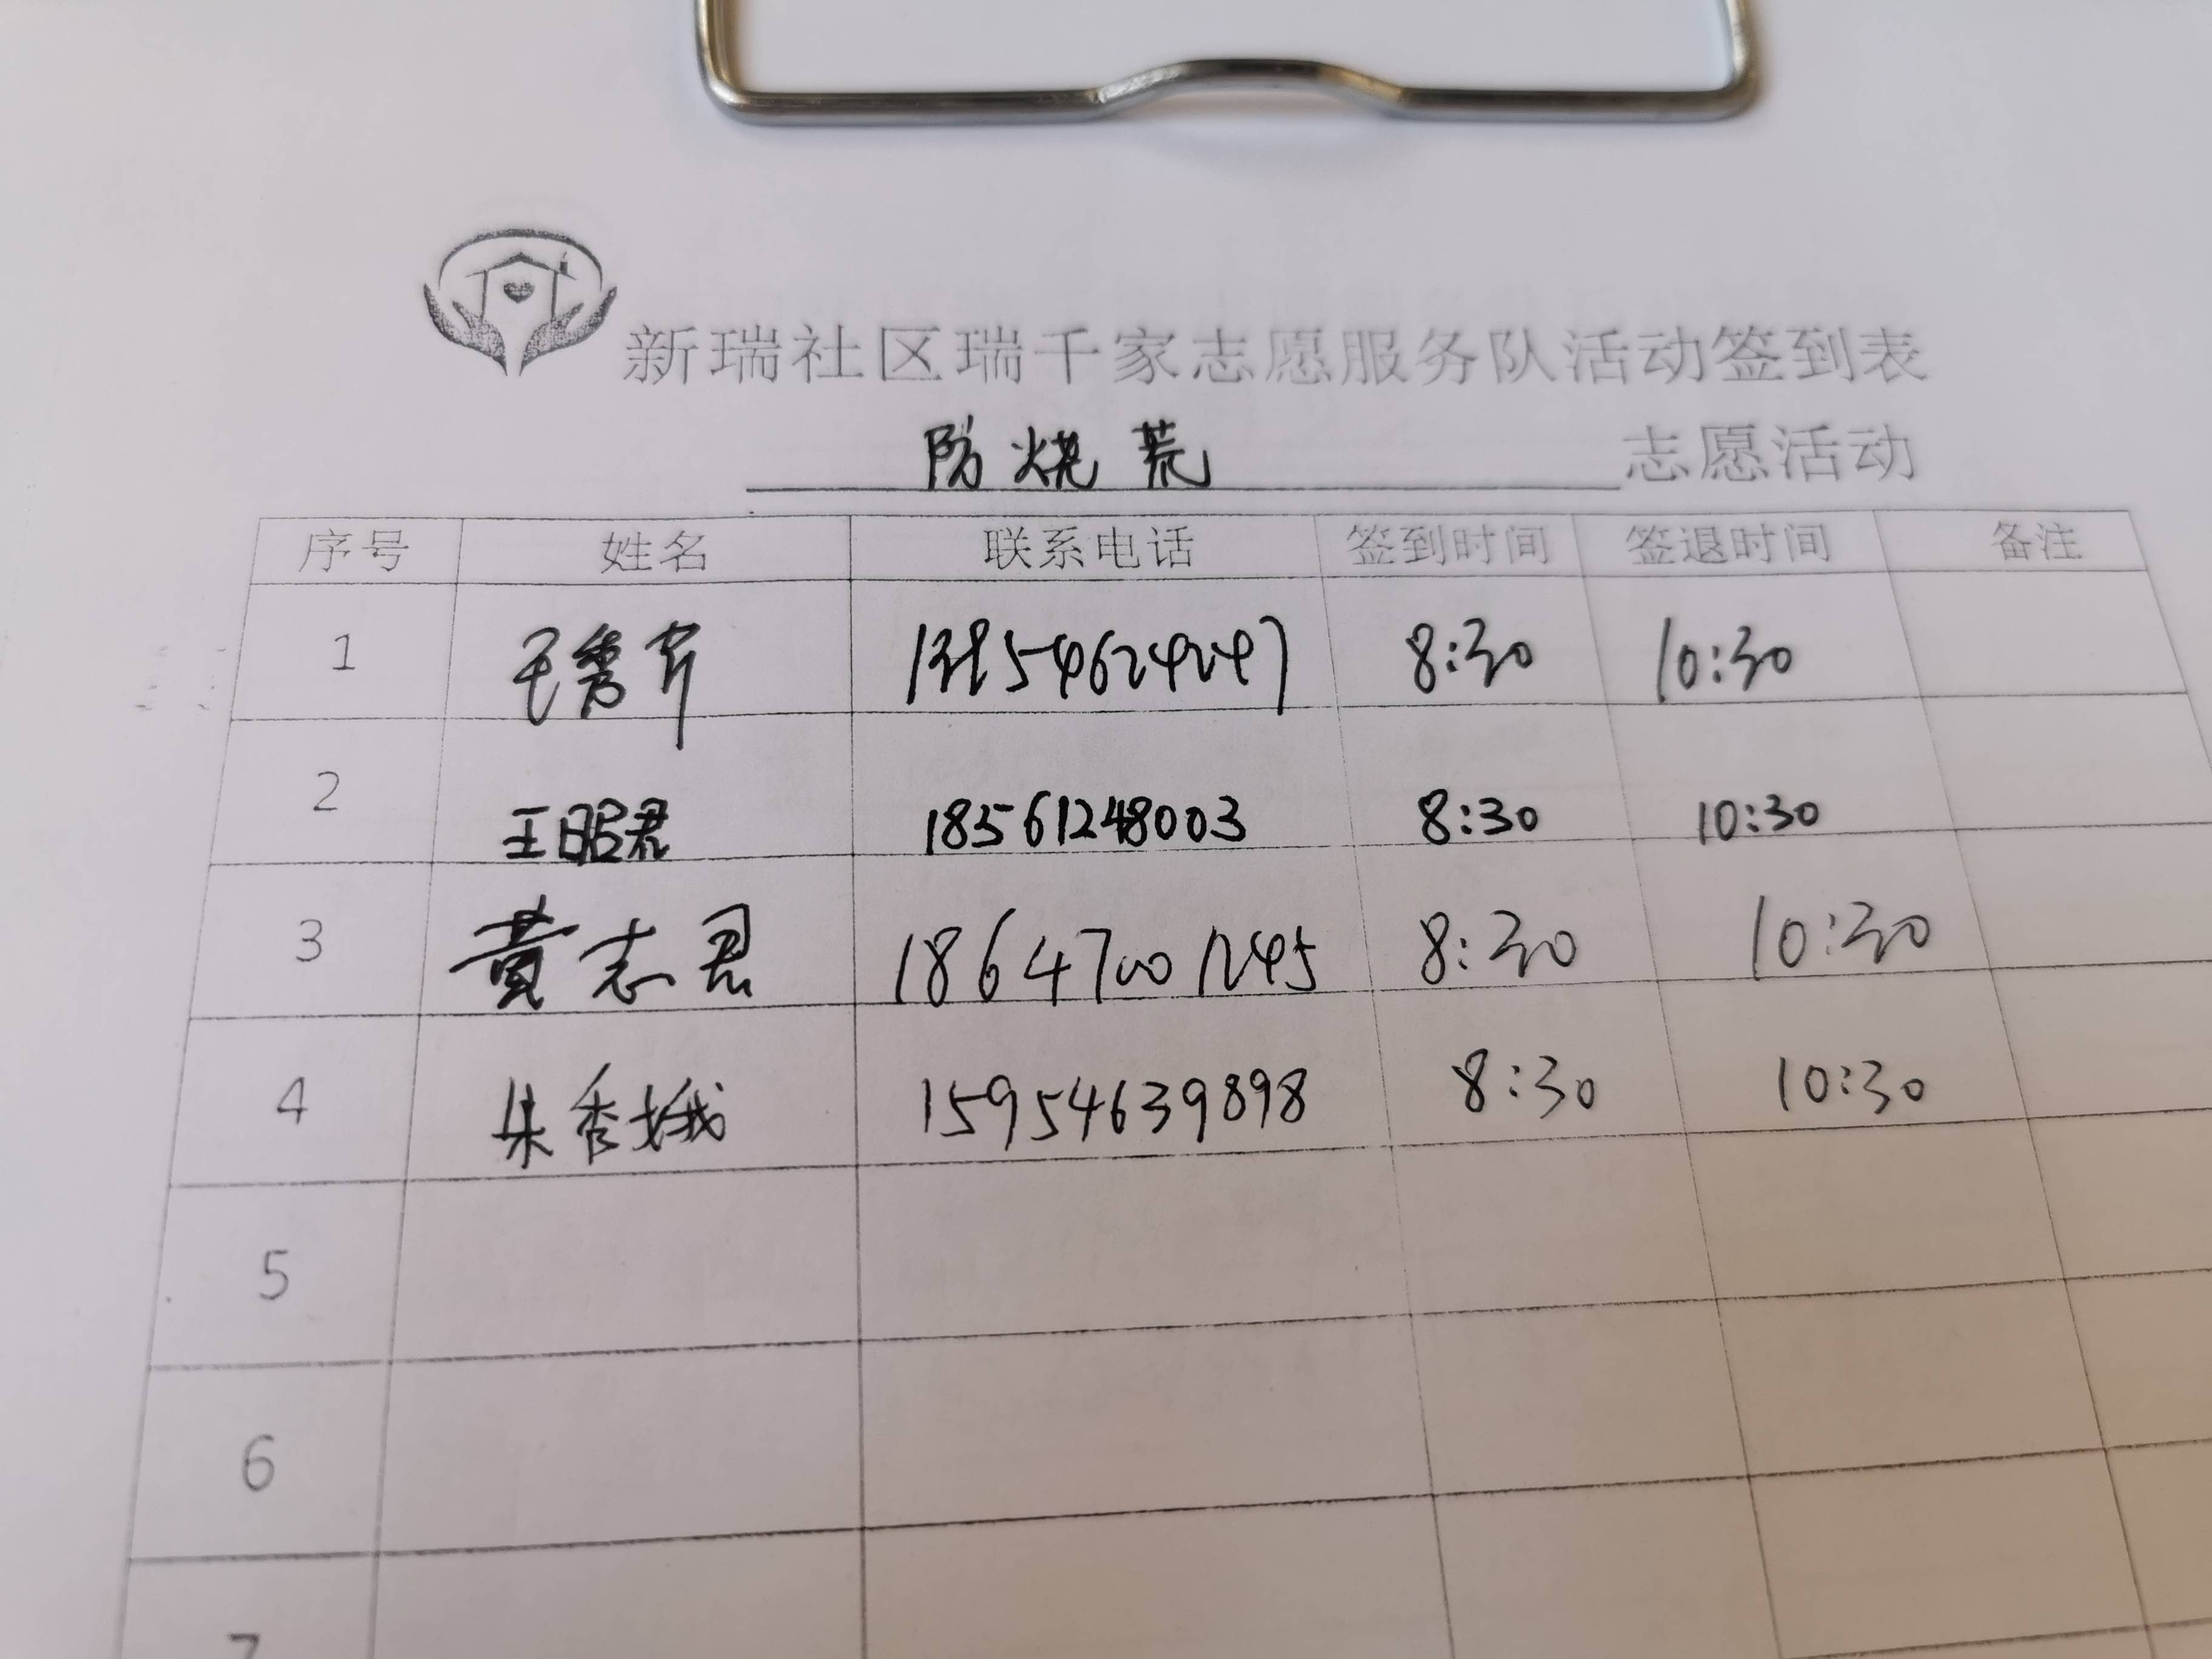 新瑞社区瑞千家志愿服务队活动签到表
防烧荒 志愿活动
序号 姓名 联系电话 签到时间 签退时间 备注
1 王秀芹 8:30 10:30
2 王昭君 18561248003 8:30 10:30
3 黄志君 18647001245 8:30 10:30
4 朱秀娥 15954639898 8:30 10:30
5
6
7